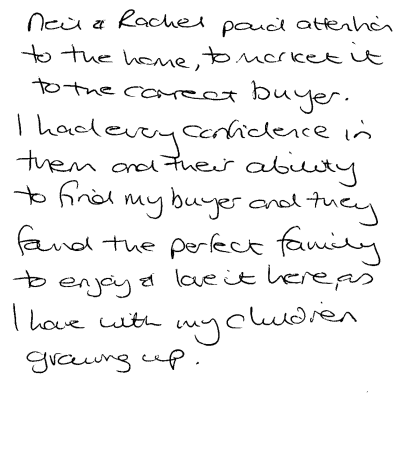 Neil & Rachel paid attention
to the home, to market it
to the correct buyer.
I had every confidence in
them and their ability
to find my buyer and they
found the perfect family
to enjoy & love it here, as
I have with my children
growing up.